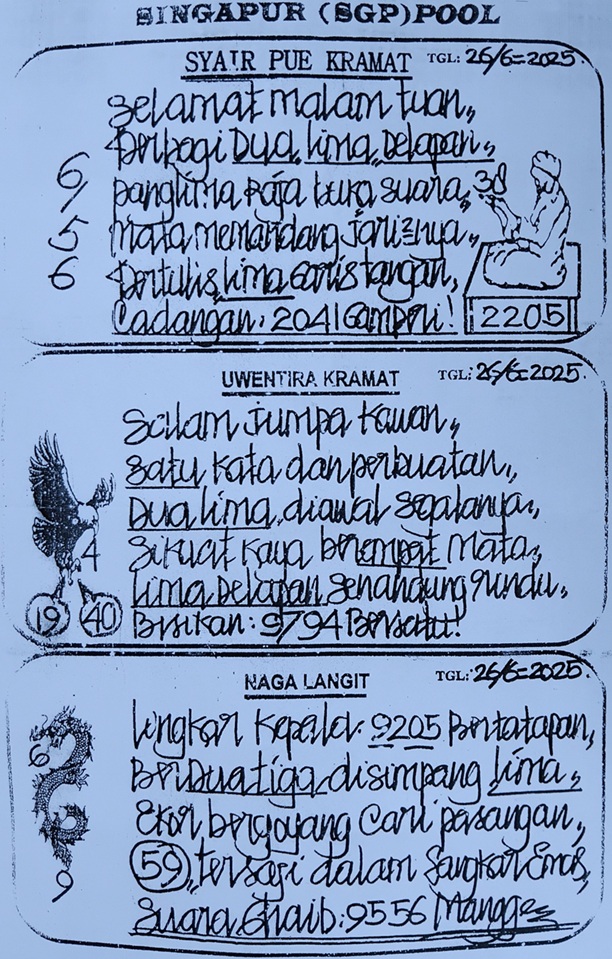 SINGAPUR (SGP) POOL
SYAIR PUE KRAMAT TGL: 26/6=2025.
Selamat malam tuan,,
Berbagi Dua, lima, Delapan,,
panglima Raja buka suara,,
38
Mata memandang jari=nya,,
Bertulis lima Garis tangan,
Cadangan: 2041 Gampori!
6/
5
6
2205
UWENTIRA KRAMAT TGL: 26/6=2025.
Salam jumpa kawan,,
Satu kata dan perbuatan,,
Dua lima, diawal segalanya,,
Sikuat kaya berempat Mata,,
lima Delapan Senandung rindu,,
Bisikan: 9794 Bersatu!
4
19 40
NAGA LANGIT TGL: 26/6=2025.
lingkar Kepala: 9205 Bertatapan,
BerDuatiga disimpang lima,,
Ekor bergoyang Cari pasangan,,
59,, tersaji dalam Sangkar Emas,
Suara Ghaib: 9556 Mangge
6
9